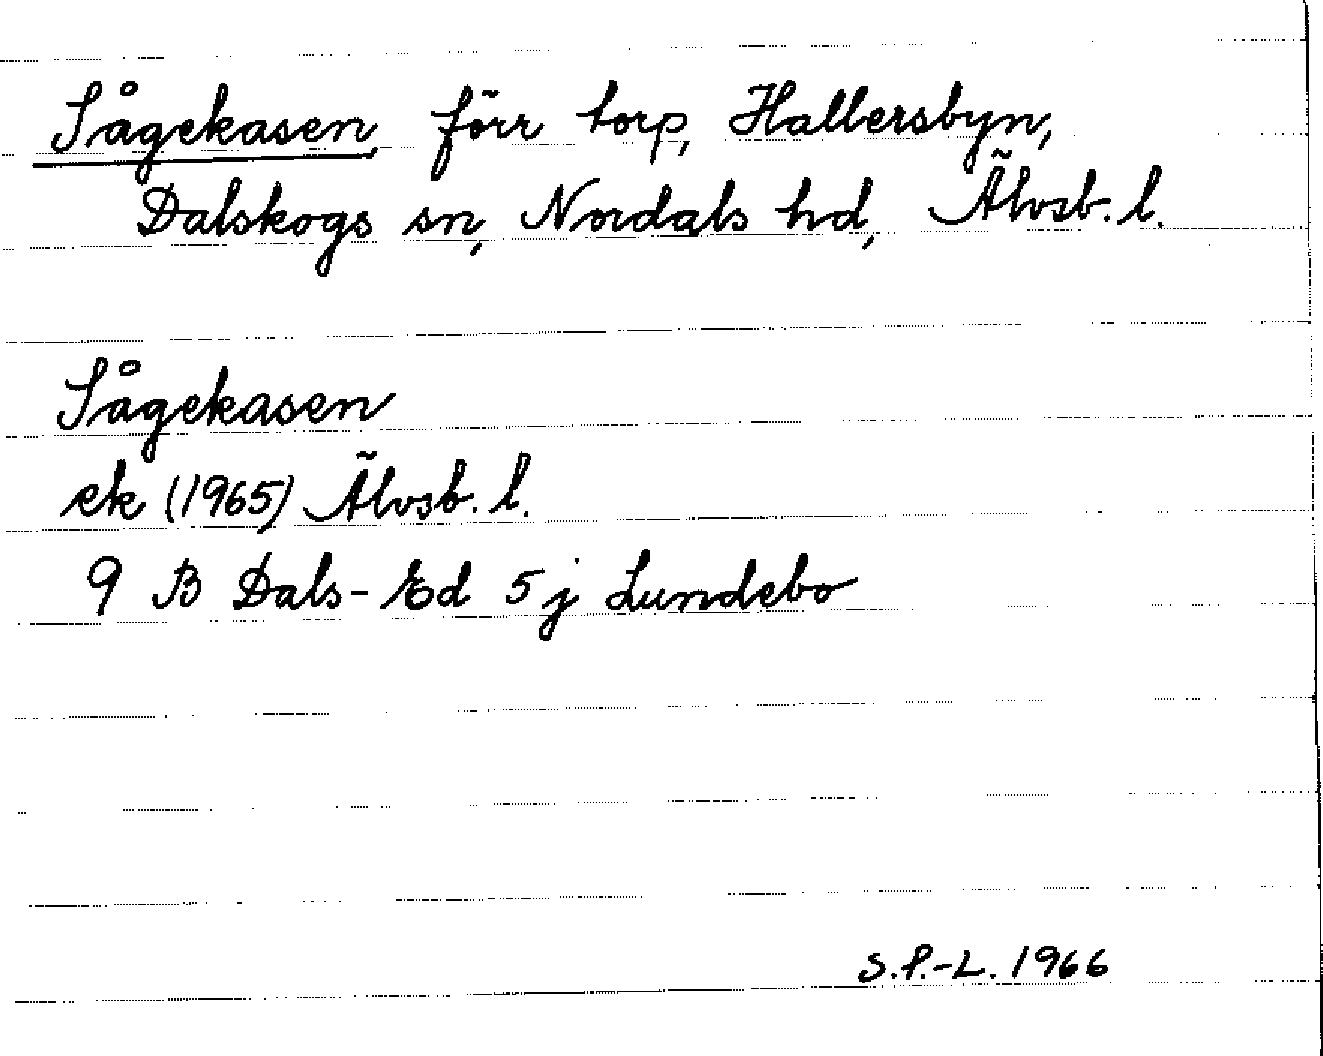 Sågekasen, förr torp, Hallersbyn,
Dalskogs sn, Nordals hd, Älvsb. l.
Sågekasen
ek (1965) Älvsb. l.
9 B Dals-Ed 5 j Lundebo
S.P.-L. 1966